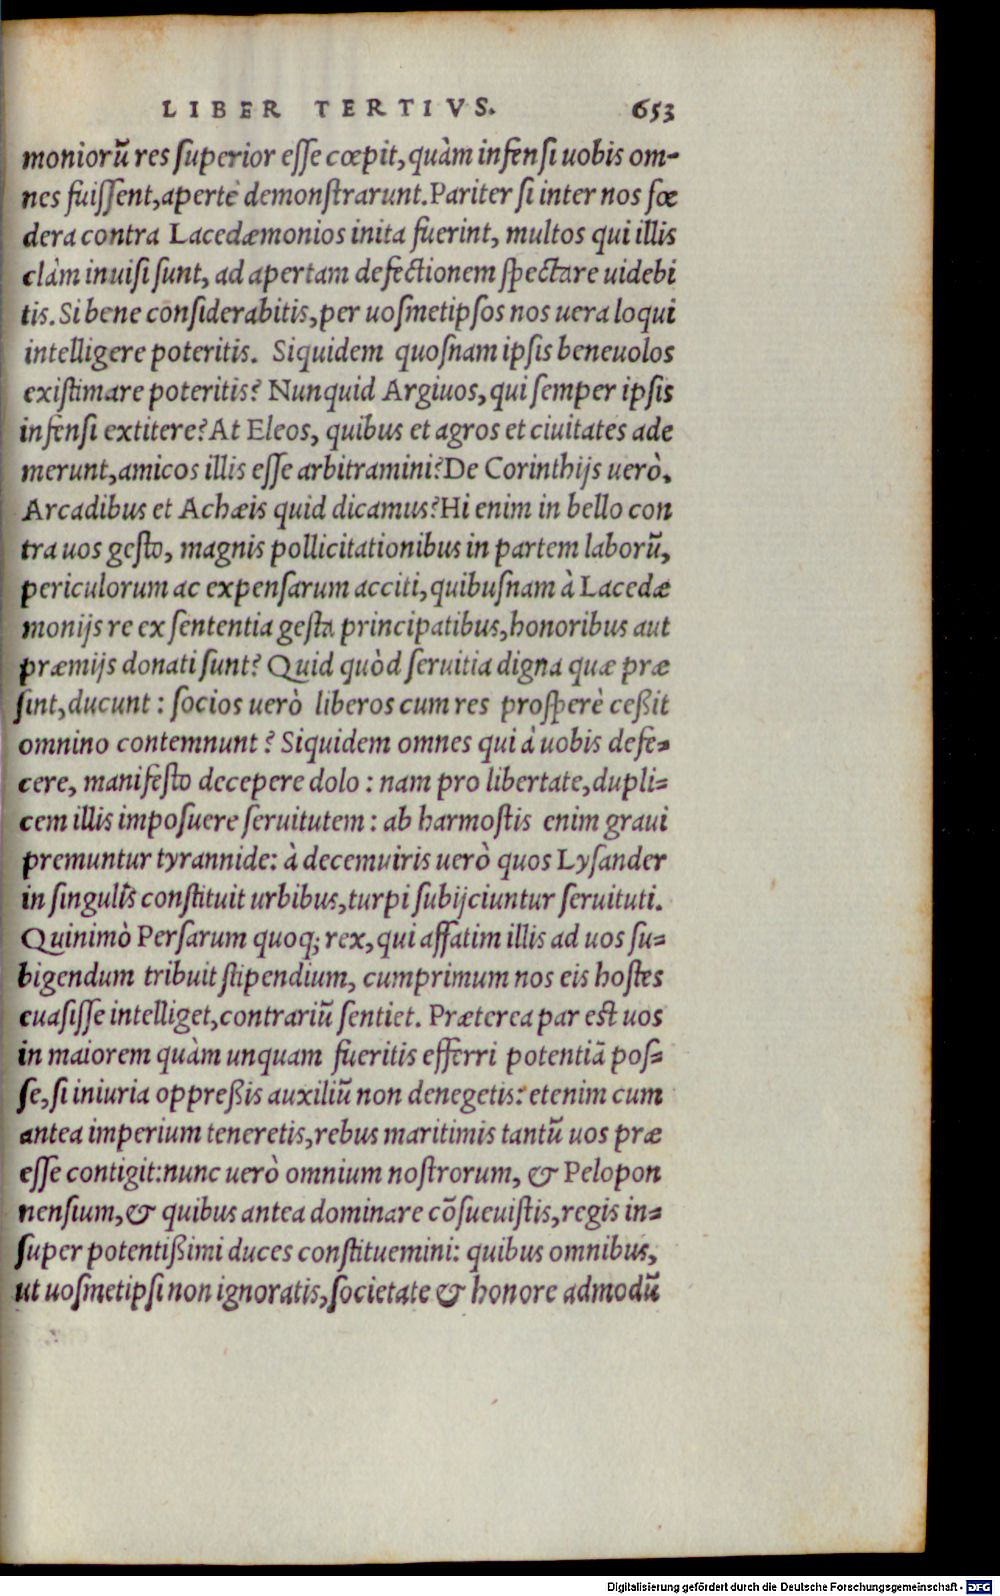 LIBER TERTIVS. 653
moniorũ res ſuperior eſſe cœpit, quàm infenſi uobis om-
nes fuiſſent, apertè demonſtrarunt. Pariter ſi inter nos fœ
dera contra Lacedæmonios inita fuerint, multos qui illis
clàm inuiſi ſunt, ad apertam defectionem ſpectare uidebi
tis. Si bene conſiderabitis, per uoſmetipſos nos uera loqui
intelligere poteritis. Siquidem quoſnam ipſis beneuolos
exiſtimare poteritis? Nunquid Argiuos, qui ſemper ipſis
infenſi extitere? At Eleos, quibus et agros et ciuitates ade
merunt, amicos illis eſſe arbitramini? De Corinthijs uerò,
Arcadibus et Achæis quid dicamus? Hi enim in bello con
tra uos geſto, magnis pollicitationibus in partem laborũ,
periculorum ac expenſarum acciti, quibuſnam à Lacedæ
monijs re ex ſententia geſta principatibus, honoribus aut
præmijs donati ſunt? Quid quòd ſeruitia digna quæ præ
ſint, ducunt: ſocios uerò liberos cum res proſperè ceßit
omnino contemnunt? Siquidem omnes qui à uobis defe-
cere, manifeſto decepere dolo: nam pro libertate, dupli-
cem illis impoſuere ſeruitutem: ab harmoſtis enim graui
premuntur tyrannide: à decemuiris uerò quos Lyſander
in ſingulis conſtituit urbibus, turpi ſubijciuntur ſeruituti.
Quinimò Perſarum quoq; rex, qui affatim illis ad uos ſu-
bigendum tribuit ſtipendium, cumprimum nos eis hoſtes
euaſiſſe intelliget, contrariũ ſentiet. Præterea par eſt uos
in maiorem quàm unquam fueritis efferri potentiã poſ-
ſe, ſi iniuria oppreßis auxiliũ non denegetis: etenim cum
antea imperium teneretis, rebus maritimis tantũ uos præ
eſſe contigit: nunc uerò omnium noſtrorum, & Pelopon
nenſium, & quibus antea dominare cõſueuiſtis, regis in-
ſuper potentißimi duces conſtituemini: quibus omnibus,
ut uoſmetipſi non ignoratis, ſocietate & honore admodũ
Digitalisierung gefördert durch die Deutsche Forschungsgemeinschaft - DFG